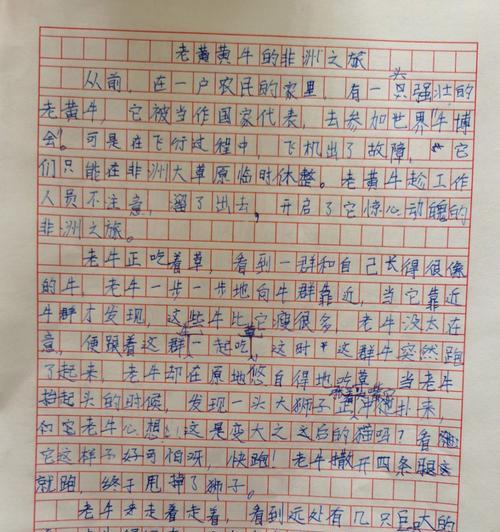 老黄黄牛的非洲之旅
从前，在一户农民的家里，有一只头强壮的
老黄牛，它被当作国家代表，去参加世界“牛博
会”。可是在飞行过程中，飞机出了故障，它
们只能在非洲大草原临时休整。老黄牛趁工作
人员不注意，溜了出去，开启了它惊心动魄的
非洲之旅。
老牛正吃着草，看到一群和自己长得很像
的牛，老牛一步一步地向牛群靠近，当它靠近
牛群才发现，这些牛比它瘦很多，老牛没太在
意，便跟着这群牛一起吃草，这时这群牛突然跑
了起来，老牛却在原地悠自得地吃草，当老牛
抬起头的时候，发现一头大狮子正冲它扑来，
老牛心想：这是变大之后的猫吗？看
它这样子好可怕呀，快跑！老牛撒开四条腿
就跑，终于甩掉了狮子。
老牛走着走着，看到远处有几只巨大的